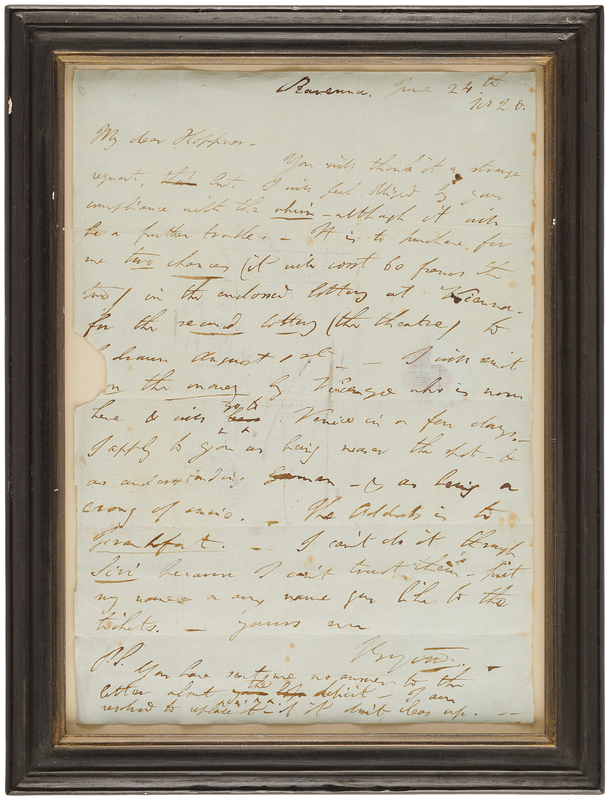 Ravenna. June 24th
1820.
My dear Hoppner -
You will think it a strange
request, but I will feel obliged by your
compliance with the whim - although it will
be a further trouble. - It is to purchase for
me two chances (it will cost 60 francs the
two) in the enclosed lottery at Vienna -
for the second lottery (the theatre) to
drawn August 1st - - I will remit
the money by Vincenzo who is now
here & will go to Venice in a few days. -
I apply to you as being nearer the spot - &
as understanding German - & as being a
crony of mine. - The Address is to
Frankfort. - I can't do it through
Siri because I can't trust them - put
my name or any name you like to the
tickets. - yours
Byron. -
P.S. You have sent me no answer to the
letter about the deficit - I am
resolved to replace it if it don't clear up. -